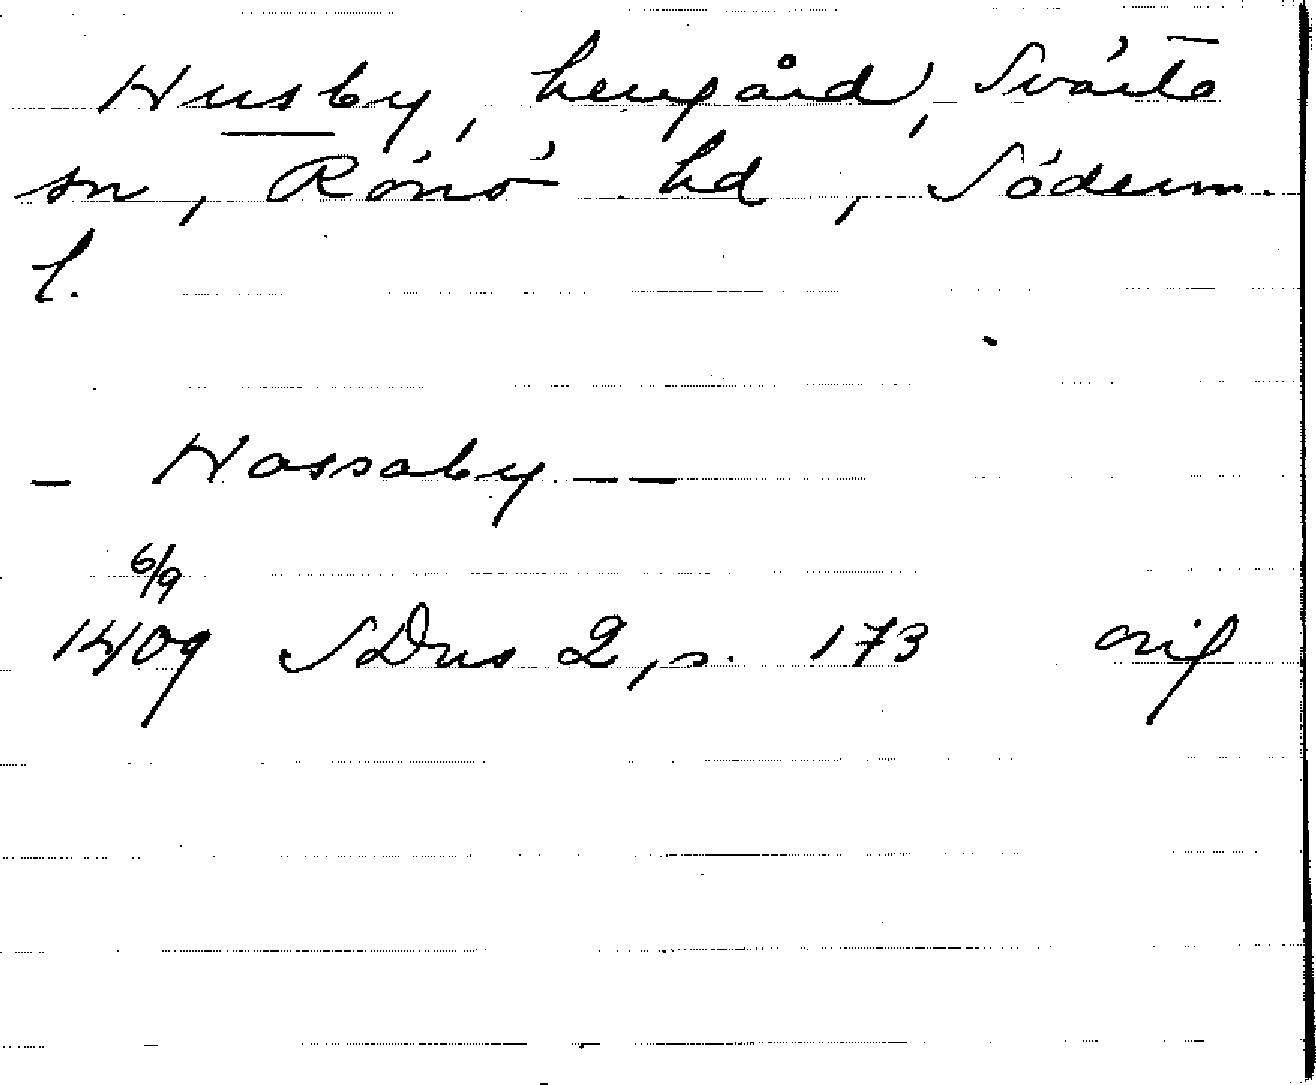 Husby, herrgård, Svärta
sn, Rönö hd, Söderm.
l.
- Hossaby - -
6/9
1409 SDns 2, s. 173 orig